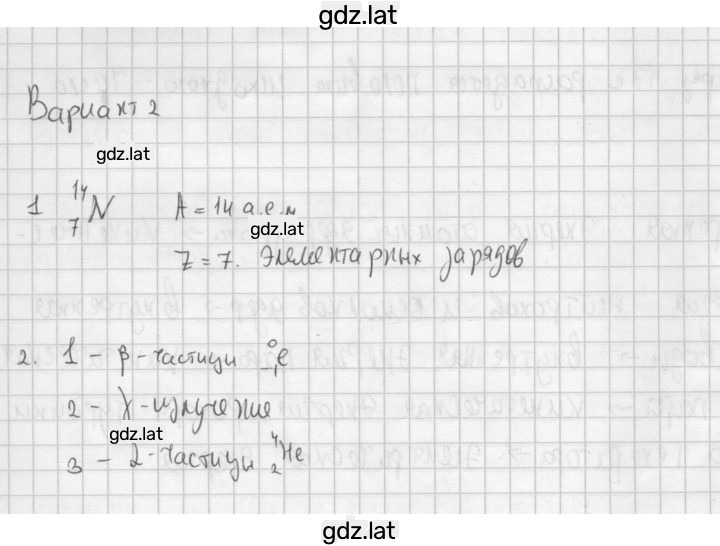 gdz.lat
Вариант 2
gdz.lat
1 ¹⁴₇N A = 14 а.е.м
gdz.lat
Z = 7. Элементарных зарядов
2. 1 – β-частицы ⁰₋₁e
2 – γ-излучение
gdz.lat
3 – α-частицы ⁴₂He
gdz.lat